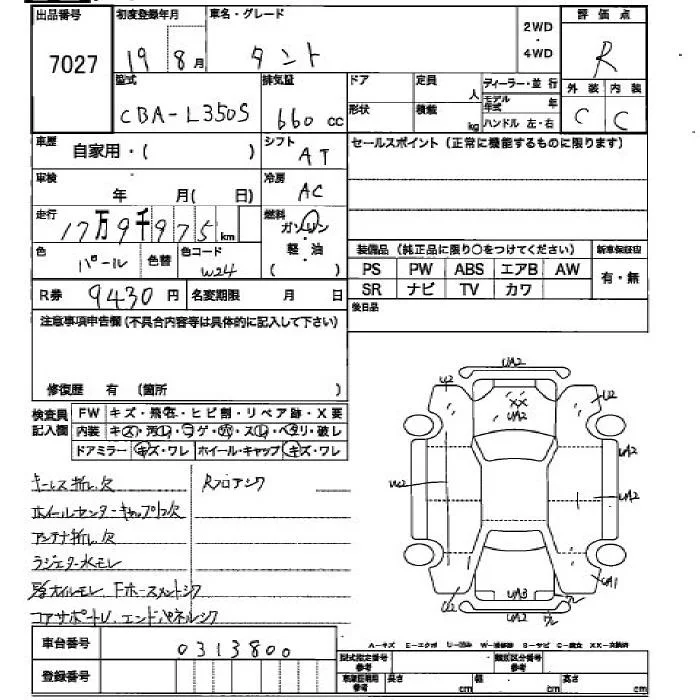 出品番号 初度登録年月 車名・グレード 評価点
7027 19 8月 タント 2WD・4WD R
型式 排気量 ドア 定員 人 ディーラー・並行 外装 内装
CBA-L350S 660cc 形状 積載 kg モデル年式 年 ハンドル 左・右 C C
車歴 自家用・( ) シフト AT セールスポイント(正常に機能するものに限ります)
車検 年 月( 日) 冷房 AC
走行 17万9千975km 燃料 ガソリン
色 パール 色替 色コード W24 軽・油 ( ) 装備品(純正品に限り○をつけてください) 新車保証書
PS PW ABS エアB AW 有・無
R券 9430円 名変期限 月 日 SR ナビ TV カワ
注意事項申告欄(不具合内容等は具体的に記入して下さい) 後日品
修復歴 有 (箇所 )
検査員記入欄 FW キズ・飛石・ヒビ割・リペア跡・X要
内装 キズ・汚れ・コゲ・穴・スレ・ベタリ・破レ
ドアミラー キズ・ワレ ホイール・キャップ キズ・ワレ
キーレス折レ欠 Rフロアシワ
ホイールセンターキャップ1欠
アンテナ折レ欠
ラジエター水モレ
オイルモレ Fホースメントシワ
コアサポートU エンドパネルシワ
UA2
U2 XX UA2 U2
UA2
UA2
UA3 UA1
U2 UA2
車台番号 0313800
A-キズ E-エクボ U-凹み W-補修跡 S-サビ C-腐食 XX-交換済
登録番号 型式指定番号 参考 類別区分番号 参考
車庫証明用参考 長さ cm 幅 cm 高さ cm